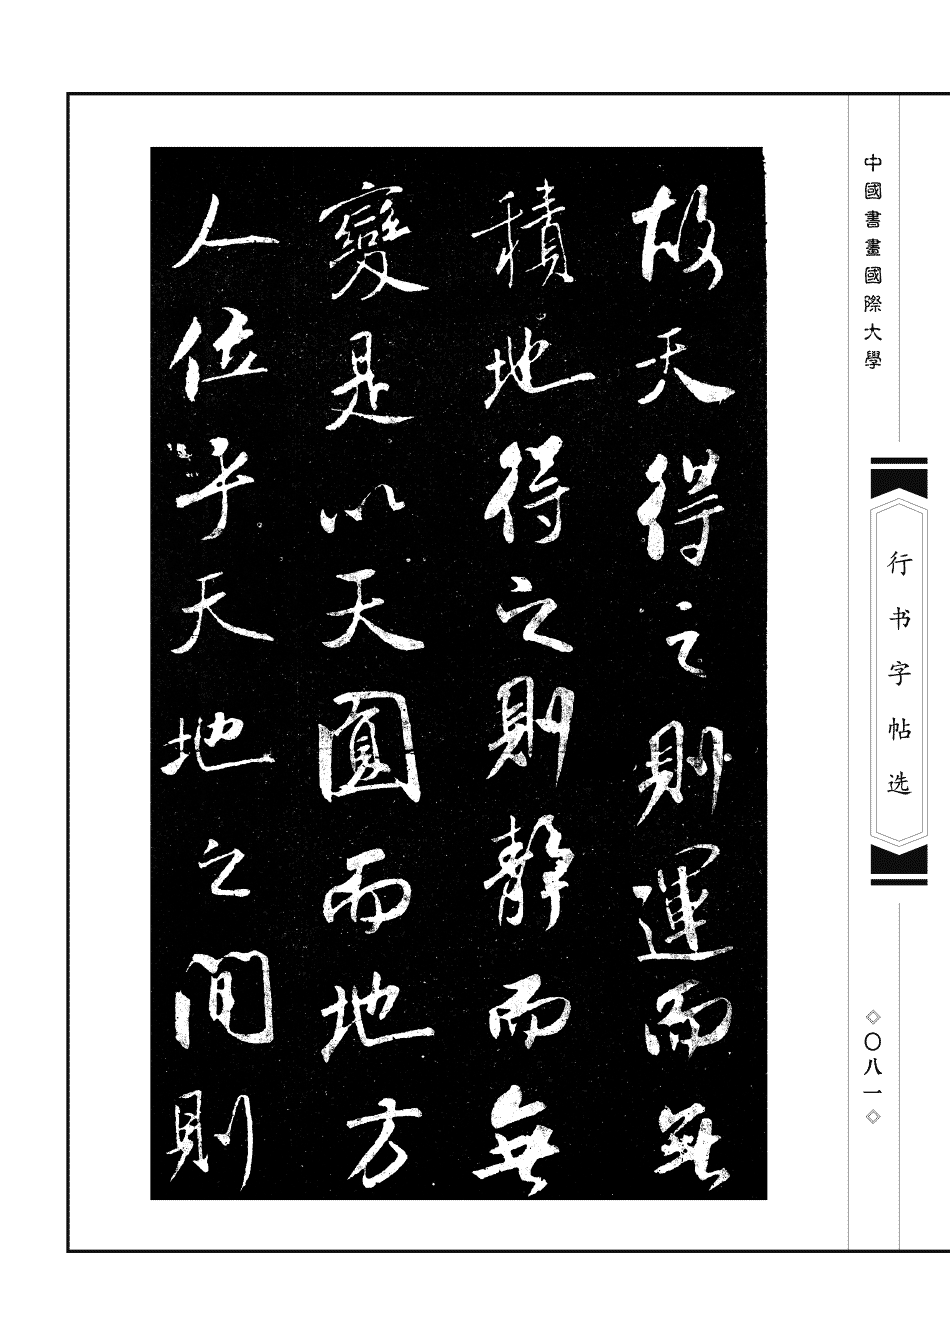 故天得之則運而無
積地得之則靜而無
變是以天圓而地方
人位乎天地之間則
中國書畫國際大學
行书字帖选
〇八一